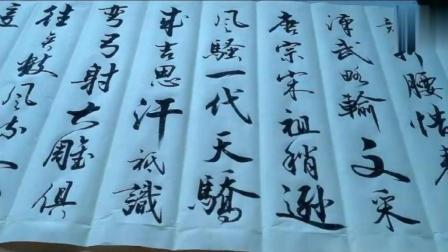 折腰惜
漢武略輸文采
唐宗宋祖稍遜
風騷一代天驕
成吉思汗祗識
彎弓射大雕俱
往矣數風流人